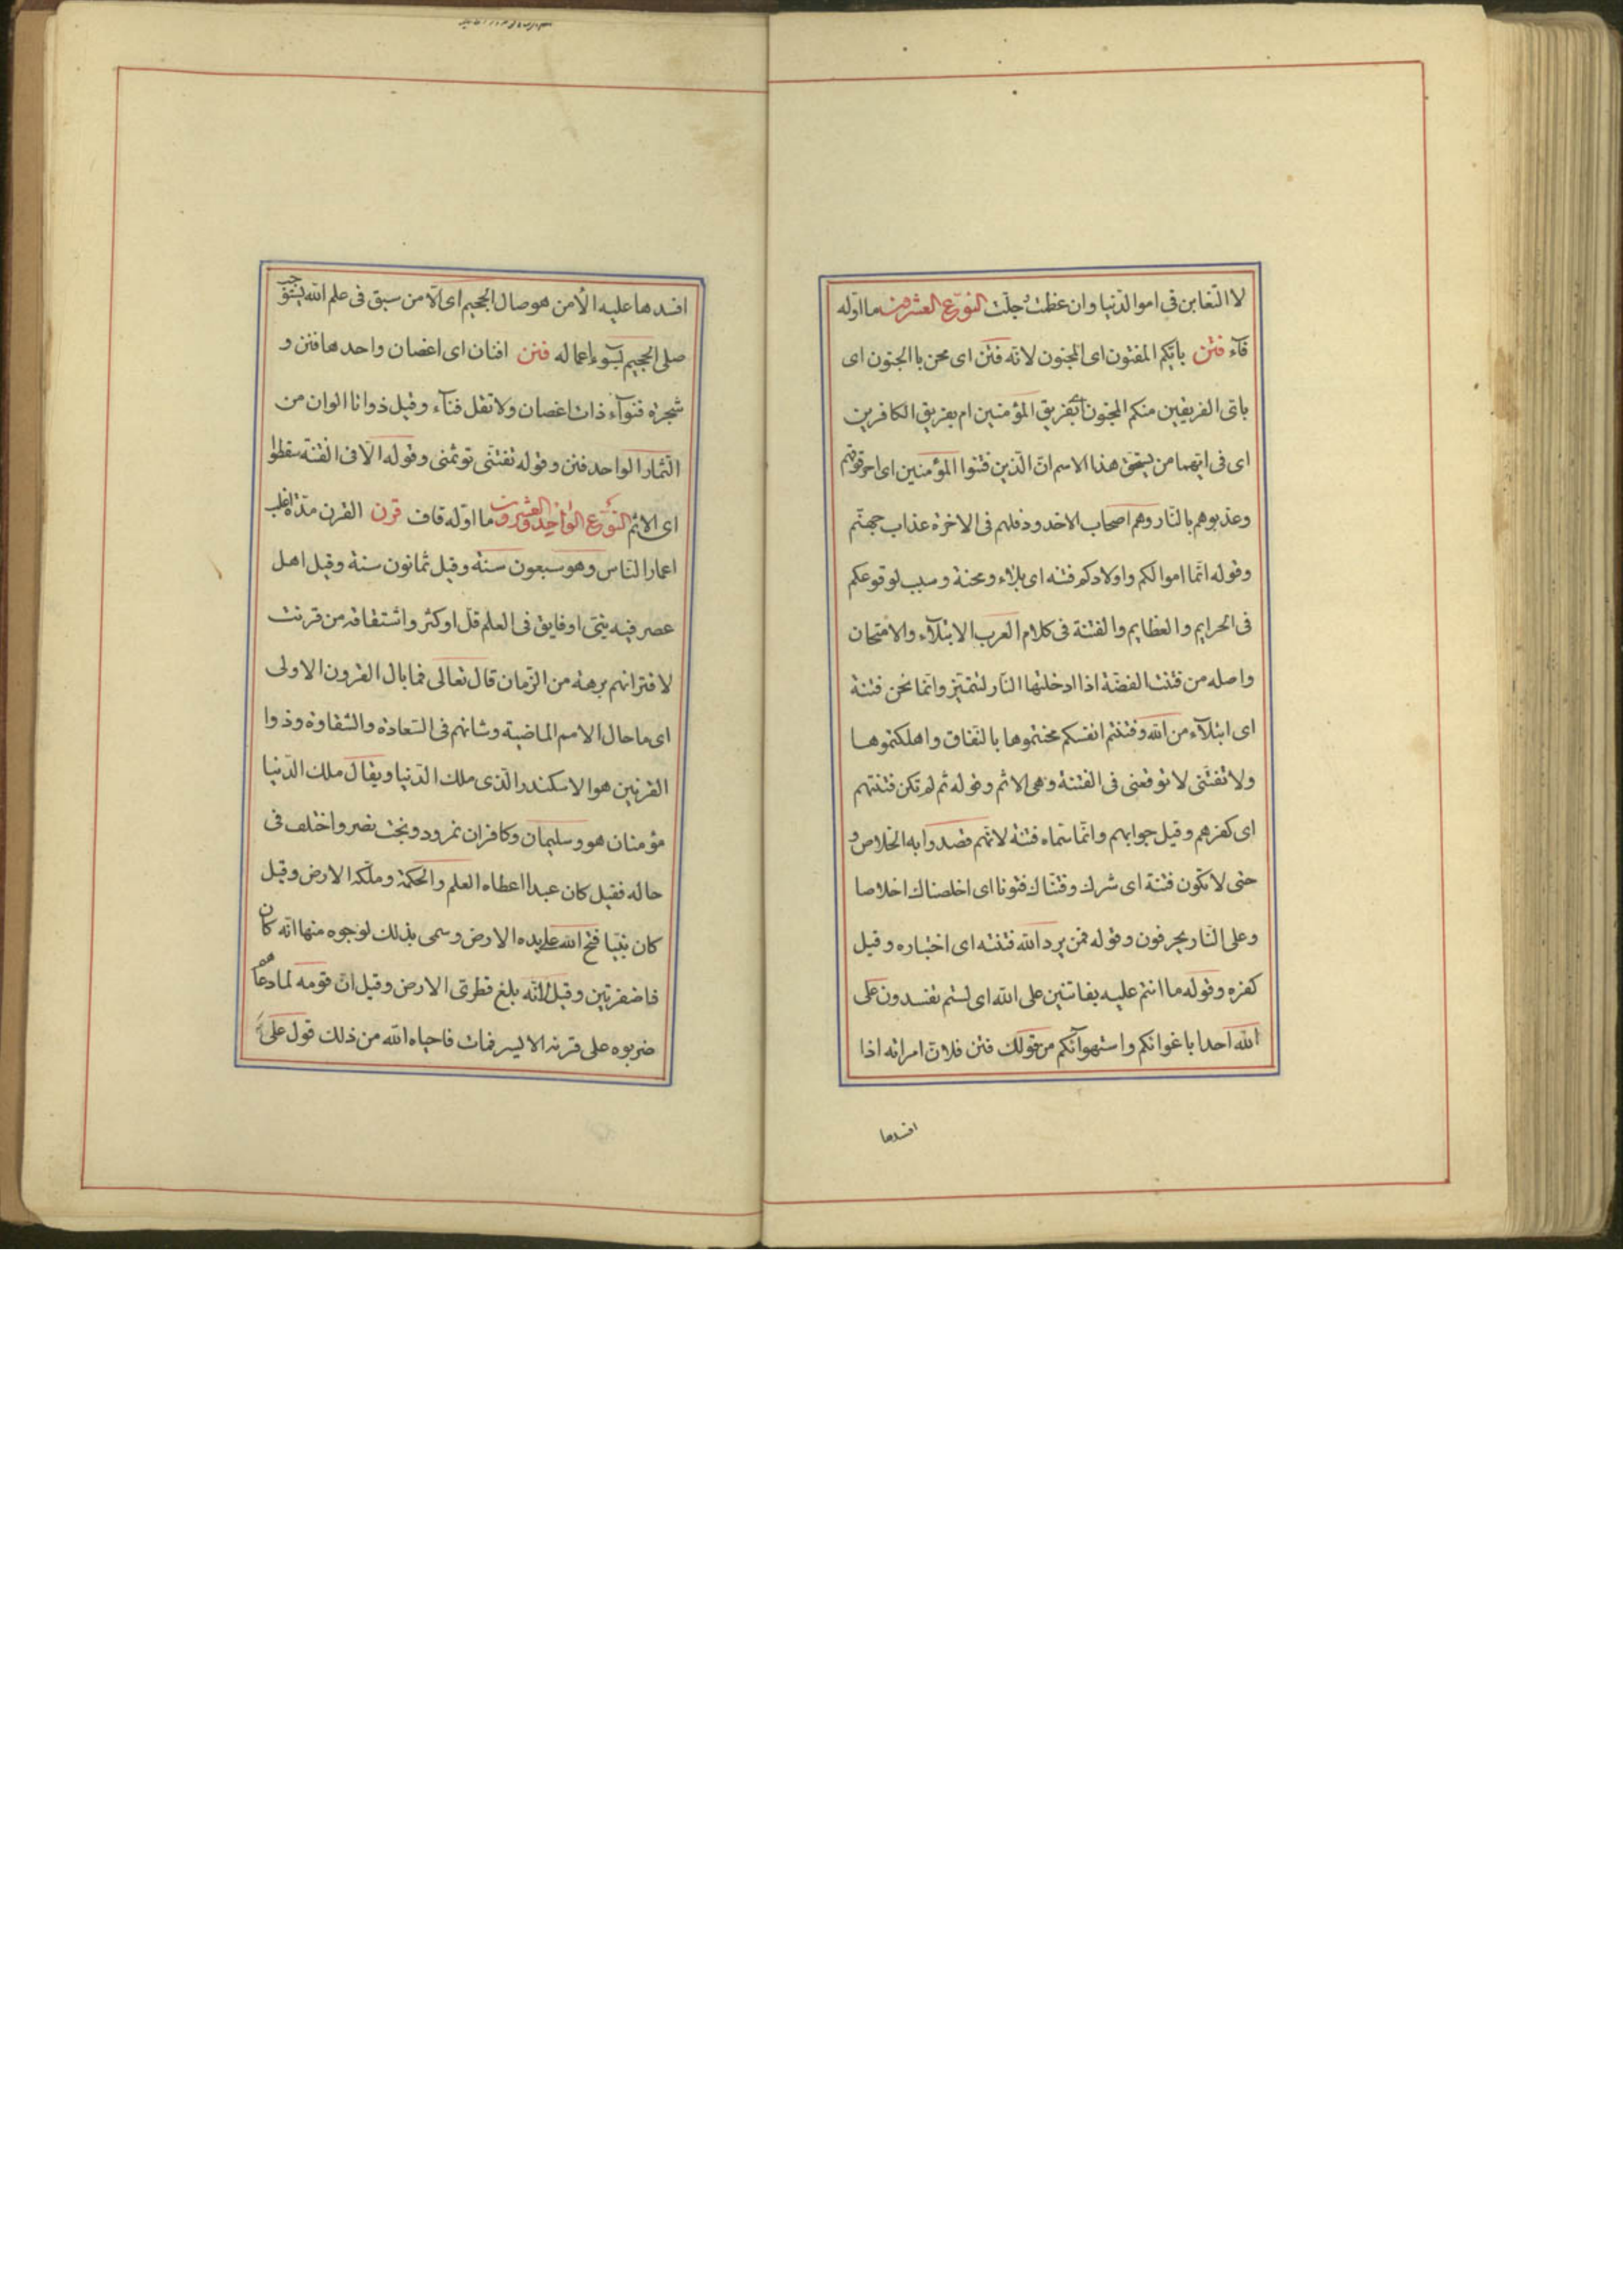 لا التغابن فى امور الدّنيا وان عظمت و جلّت النوع العشرون ما اوّله
فآء فتن بايّكم المفتون اى المجنون لانّه فتن اى محن با الجنون اى
باىّ الفريقين منكم المجنون أبفريق المؤمنين ام بفريق الكافرين
اى فى ايّهما من يستحق هذا الاسم انّ الّذين فتنوا المؤمنين اى احرقوهم
وعذبوهم بالنّار وهم اصحاب الاخدود فلهم فى الاخرة عذاب جهنّم
وقوله انّما اموالكم واولادكم فتنه اى بلاء ومحنة وسبب لوقوعكم
فى الجرايم والعظايم والفتنة فى كلام العرب الابتلآء والامتحان
واصله من فتنت الفضّة اذا ادخلتها النّار لتتميّز وانّما نحن فتنة
اى ابتلآء من الله وفتنتم انفسكم محنتموها بالنّفاق واهلكتموها
ولا تفتنّى لا توقعنى فى الفتنة وهى الاثم وقوله ثم لم تكن فتنتهم
اى كفرهم وقيل جوابهم وانّما سمّاه فتنة لانّهم قصدوا به الخلاص و
حتى لا تكون فتنة اى شرك وفتنّاك فتونا اى اخلصناك اخلاصا
وعلى النّار يحرفون وقوله فمن يرد الله فتنته اى اختباره وقيل
كفره وقوله ما انتم عليه بفاتنين على الله اى لستم تفسدون على
الله احدا باغوائكم واستهوآئكم من قولك فتن فلان امراته اذا
افسدها
افسدها عليه الّا من هو صال الجحيم اى الّا من سبق فى علم الله يستوجب
صلى الجحيم بسوء اعماله فنن افنان اى اغصان واحدها فنن و
شجرة فنوآء ذات اغصان ولا تقل فنآء وقيل ذواتا الوان من
الثّمار الواحد فنن وقوله تفتنّى توثمنى وقوله الا فى الفتنة سقطوا
اى الاثم النوع الواحد والعشرون ما اوّله قاف قرن القرن مدّة اغلب
اعمار النّاس وهو سبعون سنة وقيل ثمانون سنة وقيل اهل
عصر فيه نبىّ او فايق فى العلم قل او كثر واشتقاقه من قرنت
لاقترانهم برهة من الزّمان قال تعالى فما بال القرون الاولى
اى ما حال الامم الماضية وشانهم فى السّعادة والشقاوة وذوا
القرنين هو الاسكندر الّذى ملك الدّنيا ويقال ملك الدّنيا
مؤمنان هو وسليمان وكافران نمرود وبخت نصر واختلف فى
حاله فقيل كان عبدا اعطاه العلم والحكمة وملّكه الارض وقيل
كان نبيّا فتح الله على يده الارض وسمى بذلك لوجوه منها انّه كان
ذا ضفرتين وقيل لانّه بلغ قطرى الارض وقيل انّ قومه لما دعاهم
ضربوه على قرنه الايسر فمات فاحياه الله من ذلك قول على